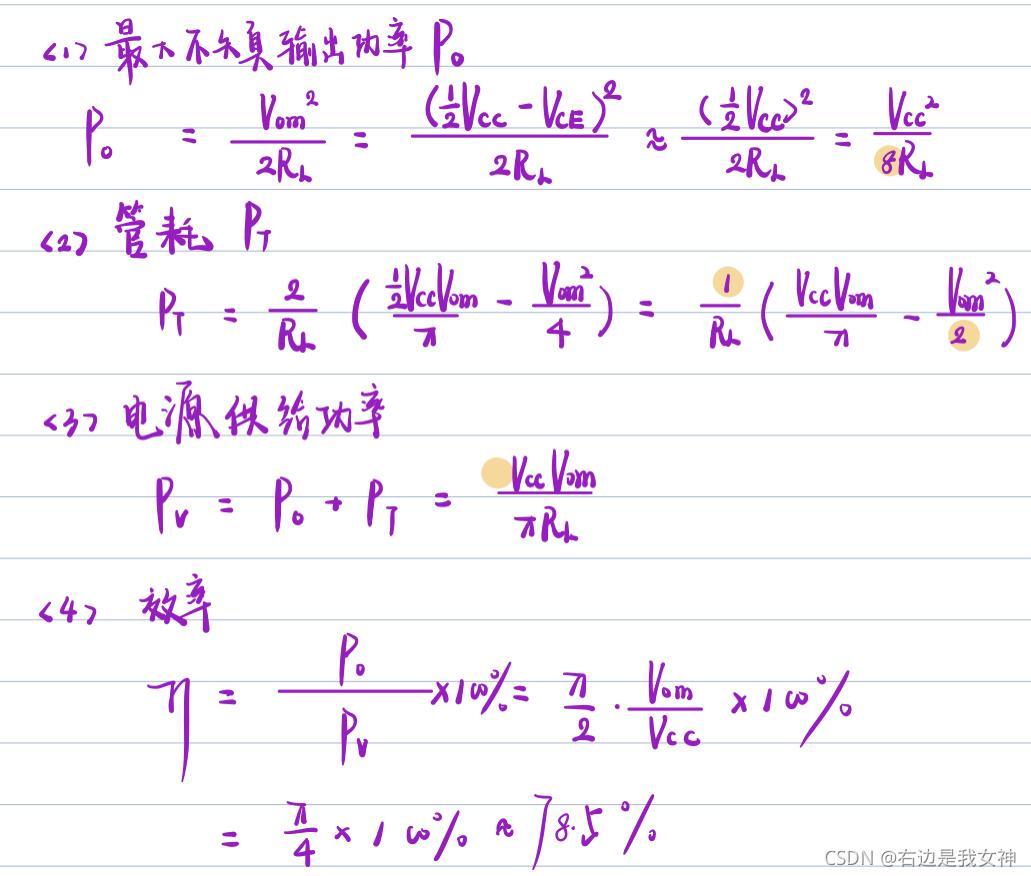 <1> 最大不失真输出功率 Po
Po = Vom²/2RL = (½Vcc - VCE)²/2RL ≈ (½Vcc)²/2RL = Vcc²/8RL
<2> 管耗 PT
PT = 2/RL (½VccVom/π - Vom²/4) = 1/RL (VccVom/π - Vom²/2)
<3> 电源供给功率
Pv = Po + PT = VccVom/πRL
<4> 效率
η = Po/Pv ×100% = π/2 · Vom/Vcc ×100%
= π/4 × 100% ≈ 78.5%
CSDN @右边是我女神